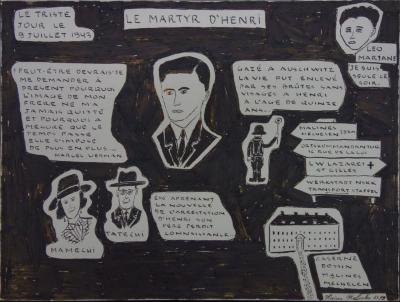 LE TRISTE
JOUR LE
9 JUILLET 1943
LE MARTYR D'HENRI
LEO
MARJANE
JE SUIS
SEULE CE
SOIR.
PEUT-ÊTRE DEVRAIS-JE
ME DEMANDER À
PRÉSENT POURQUOI
L'IMAGE DE MON
FRÈRE NE M'A
JAMAIS QUITTÉ
ET POURQUOI À
MESURE QUE LE
TEMPS PASSE
ELLE S'IMPOSE
DE PLUS EN PLUS...
MARCEL LIEBMAN
GAZÉ À AUSCHWITZ
LA VIE FUT ENLEVÉ
PAR SES BRUTES SANS
VISAGES À HENRI
À L'AGE DE QUINZE
ANS.
MALINES
MECHELEN
ORTSKOMMANDANTUR
LW LAZARET +
ST GILLES
WERKSTATT NSKK
TRANSPORT STAFFEL
MAMECHI
TATECHI
EN APPRENANT
LA NOUVELLE
DE L'ARRESTATION
D'HENRI SON
PÈRE PERDIT
CONNAISSANCE...
CASERNE
DOSSIN
MALINES
MECHELEN